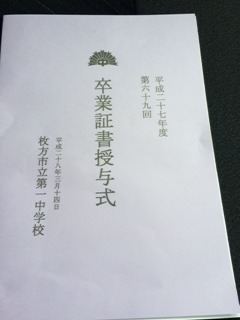 平成二十七年度
第六十九回
卒業証書授与式
平成二十八年三月十四日
枚方市立第一中学校